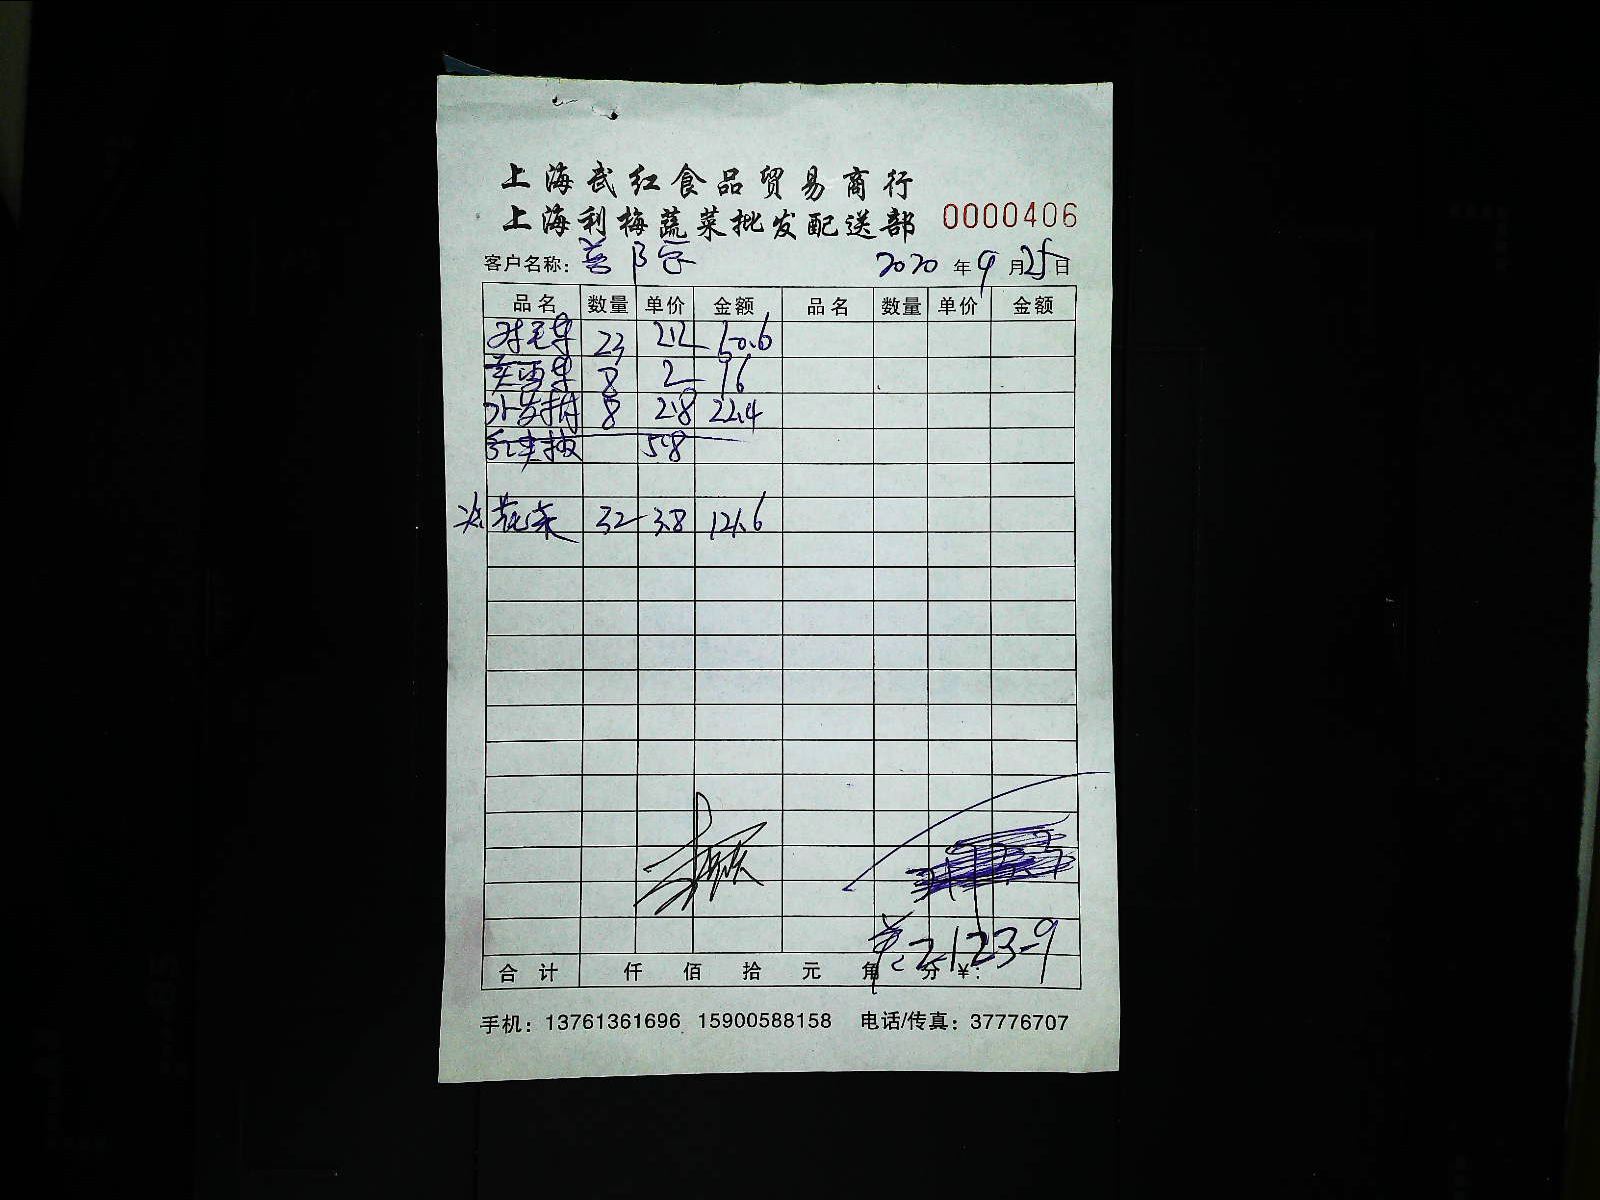 上海武红食品贸易商行
上海利梅蔬菜批发配送部 0000406
客户名称: 2020年9月25日
品名 数量 单价 金额 品名 数量 单价 金额
23 2.2 50.6
8 2 16
8 2.8 22.4
红尖椒 5.8
花菜 32 3.8 121.6
2123-9
合计 仟 佰 拾 元 角 分 ¥:
手机: 13761361696 15900588158 电话/传真: 37776707